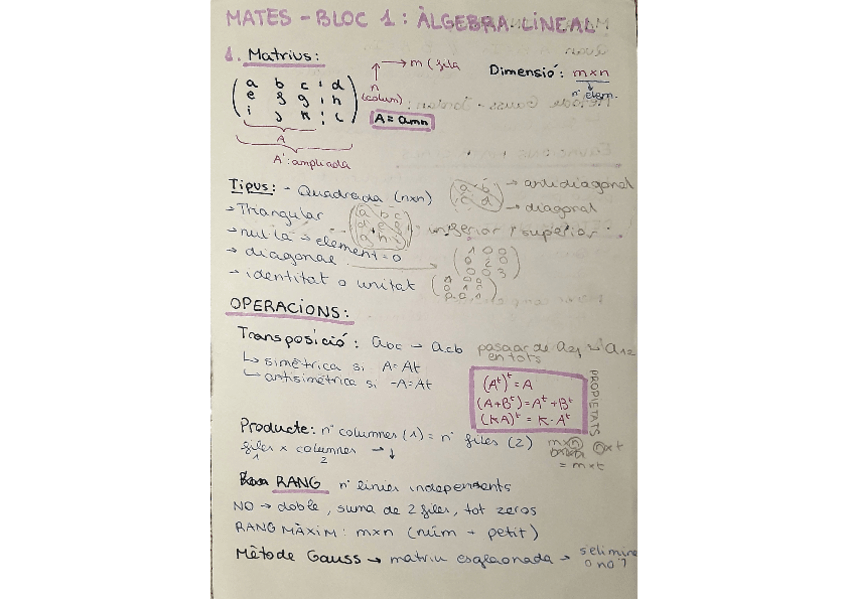 MATES - BLOC 1: ÀLGEBRA LINEAL
1. Matrius:
→ m (fila
n (colum)
Dimensió: m×n
nº elem.
a b c d
e f g h
i j k l
A = amn
A
A': ampliada
Tipus: - Quadrada (n×n)
a b
c d
→ antidiagonal
→ diagonal
→ Triangular
inferior / superior
→ nul·la → element = 0
→ diagonal
1 0 0
0 2 0
0 0 3
→ identitat o unitat
OPERACIONS:
Transposició: abc → acb passar de a21 → a12
en tots
↳ simètrica si A = At
↳ antisimètrica si -A = At
(A^t)^t = A
(A+B^t) = A^t + B^t
(KA)^t = K · A^t
PROPIETATS
Producte: nº columnes (1) = nº files (2)
m×n n×t
= m×t
files × columnes → ↓
1 2
RANG nº línies independents
NO → doble, suma de 2 files, tot zeros
RANG MÀXIM: m×n (núm + petit)
Mètode Gauss → matriu esglaonada → s'elimina
o no?